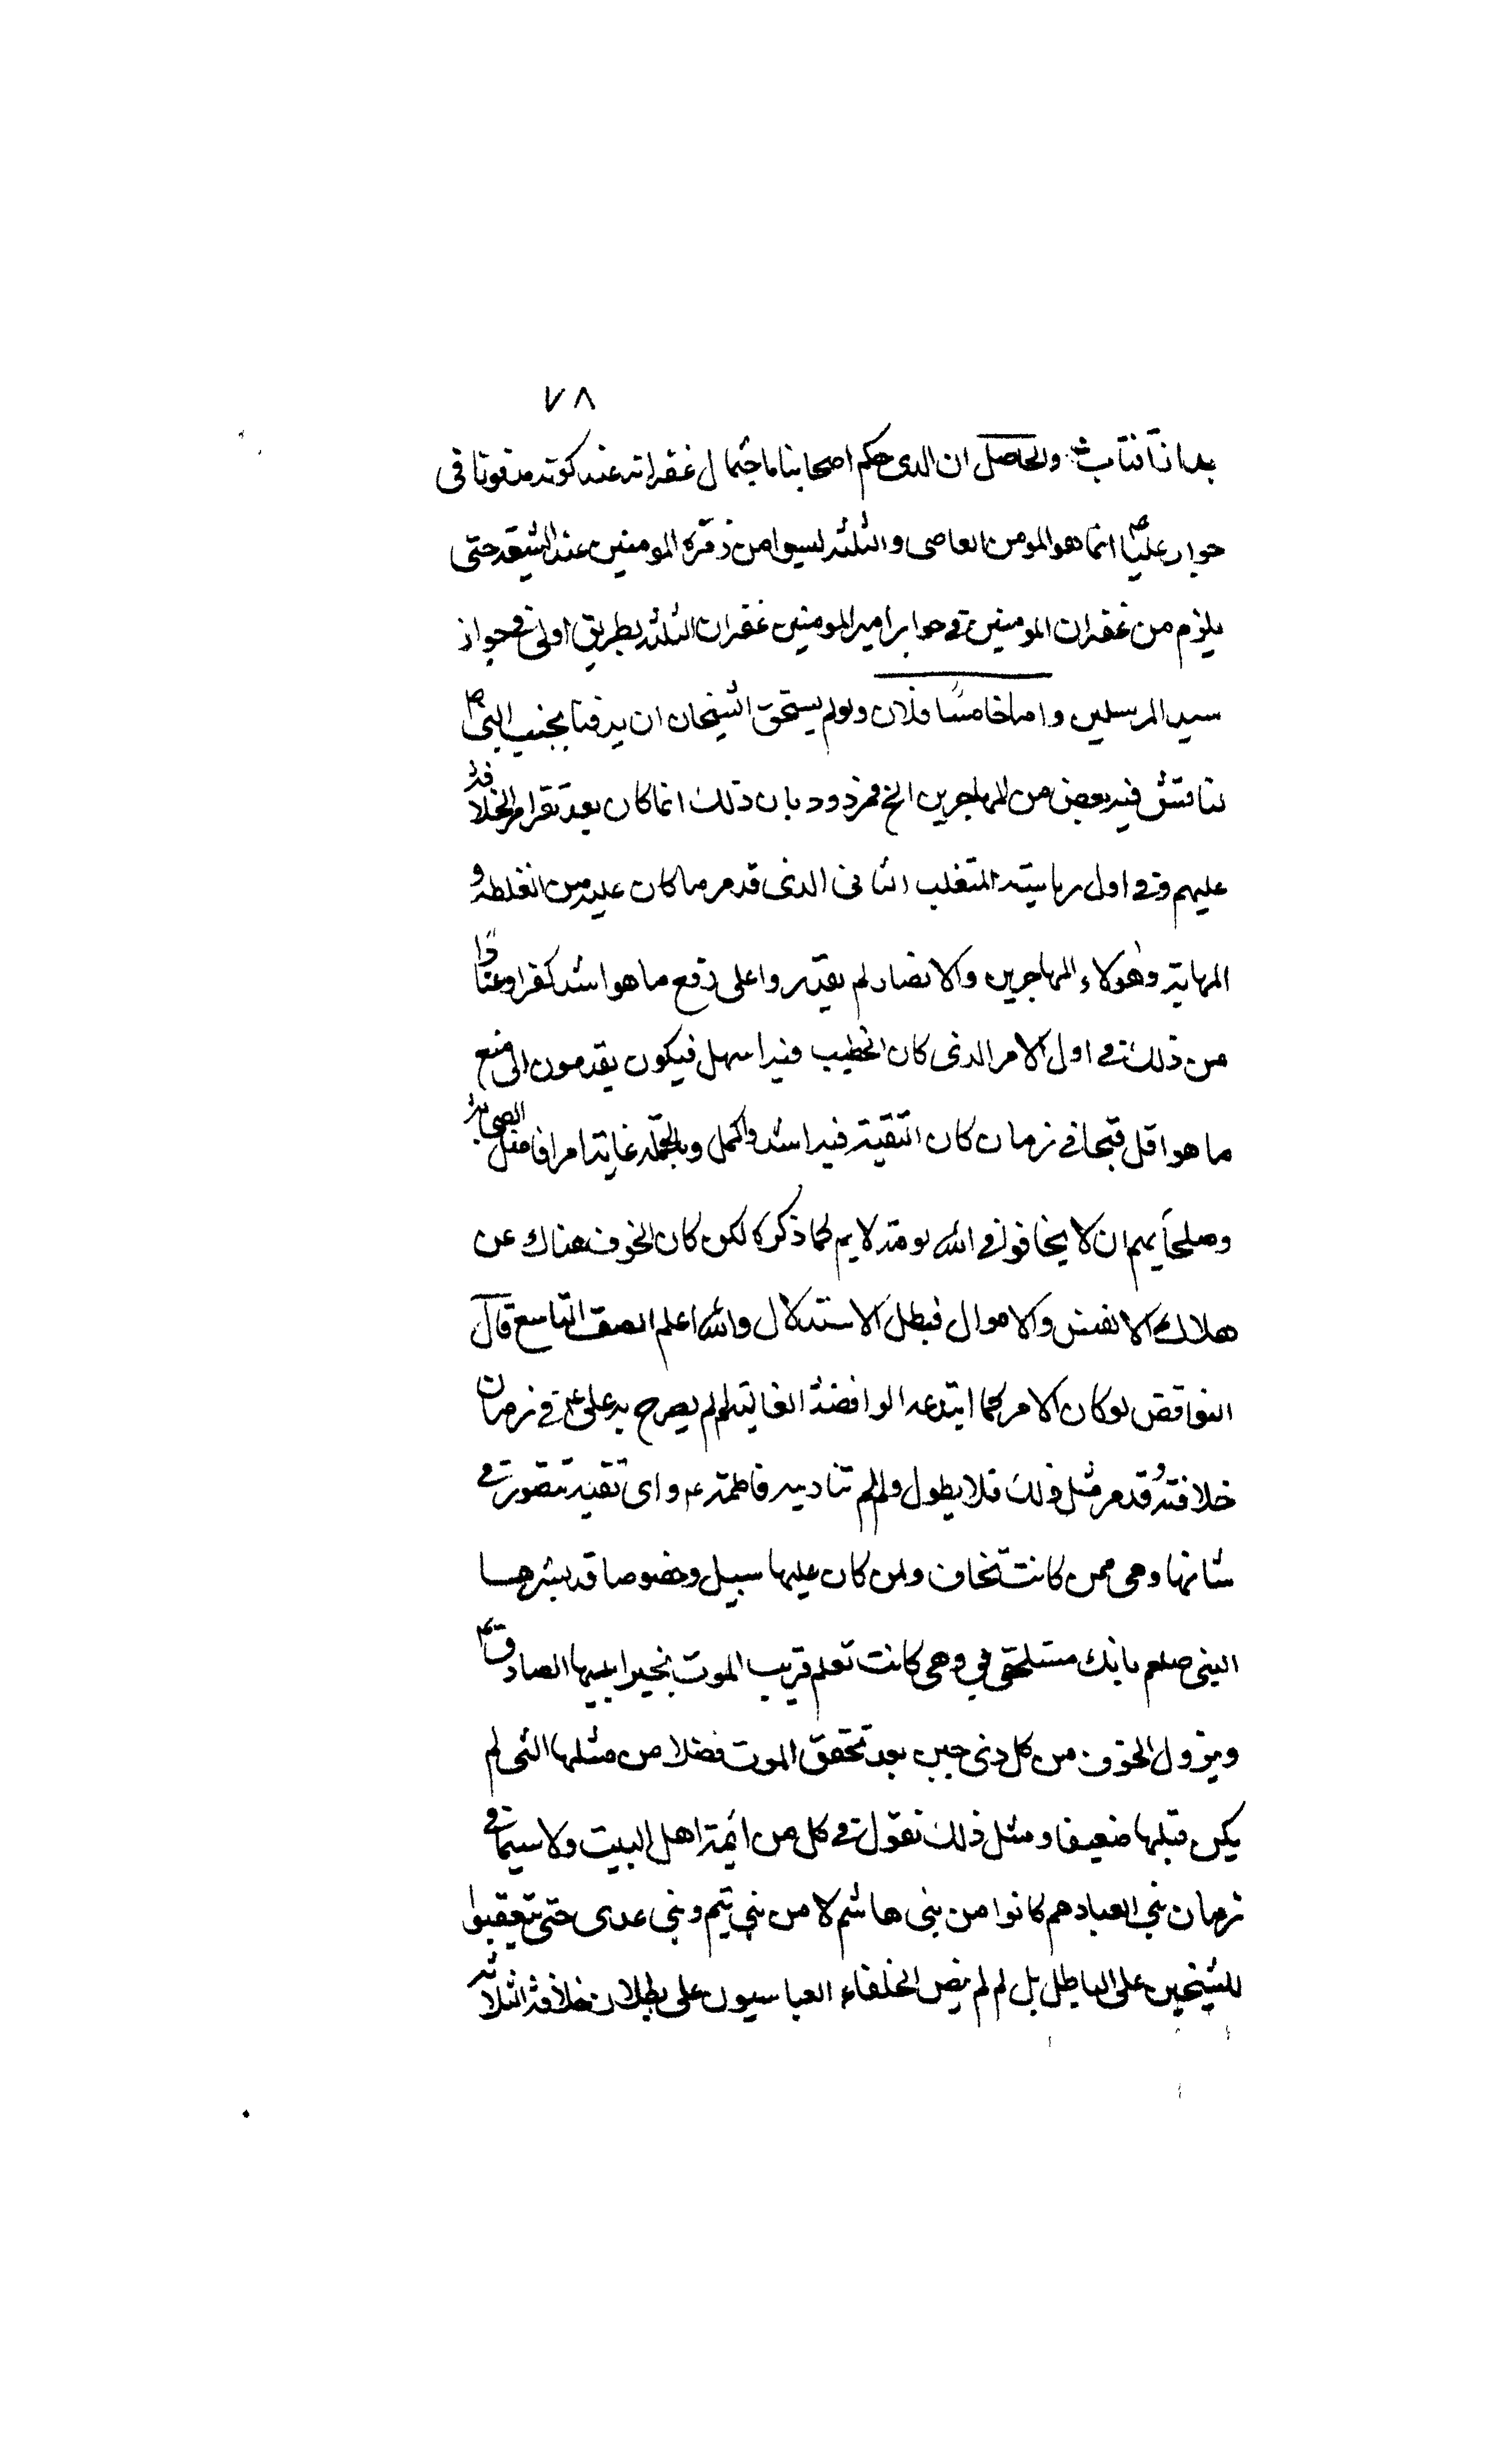 ٧٨
والحاصل ان الذى حكم اصحابنا باحتمال غفرانه عند كونه مدفونا فى
جوار علىّ انما هو المومن العاصى والثلثه ليسوا من زمرة المومنين عند الشيعه حتى
يلزم من غفران المومنين فى جوار امير المومنين غفران الثلثه بطريق اولى فى جوار
سيد المرسلين واما خامسًا فلان ولو لم يستحق الشيخان ان يدفنا بجنب النبى
لناقش فيه بعض من المهاجرين الخ فمردود بان ذلك انما كان بعد تقرر امر الخلافة
عليهم وفى اول رياسته المتغلب الثانى الذى قد مر ما كان عليه من الغلظه و
المهابة وهولاء المهاجرين والانصار لم يقدروا على رفع ما هو اشد كفرا وعنادًا
من ذلك فى اول الامر الذى كان الخطب فيه اسهل فيكون يقدمون الى منع
ما هو اقل قبحا فى زمان كان التقية فيه اشد واكمل وبالجمله غاية امر افاضل الصحابة
وصلحايهم ان لا يخافوا فى الله لومة لايم كما ذكره لكن كان الخوف هناك عن
هلاك الانفس والاموال فبطل الاستدلال والله اعلم التاسع قال
النواقض لو كان الامر كما ابتدعه الرافضة الغالية لم لم يصرح به على ع فى زمان
خلافته وقد مر مثل ذلك فلا يطول ولم لم تناد به فاطمة ع واى تقية تتصور فى
شانها وهى ممن كانت تخاف ولمن كان عليها سبيل وخصوصا قد بشرها
النبى صلعم بانك ستلحقى بى وهى كانت تعلم قريب الموت بخبر ابيها الصادق
ويزول الخوف من كل ذى جبن بعد تحقق الموت فضلا من مثلها التى لم
يكن قبلها ضعيفا ومثل ذلك نقول فى كل من ائمة اهل البيت ولا سيما فى
زمان بنى العباد هم كانوا من بنى هاشم لا من بنى تيم وبنى عدى حتى يتعقبوا
للشيخين على الباطل بل لم لم ينص الخلفاء العباسيون على بطلان خلافة الثلاثه